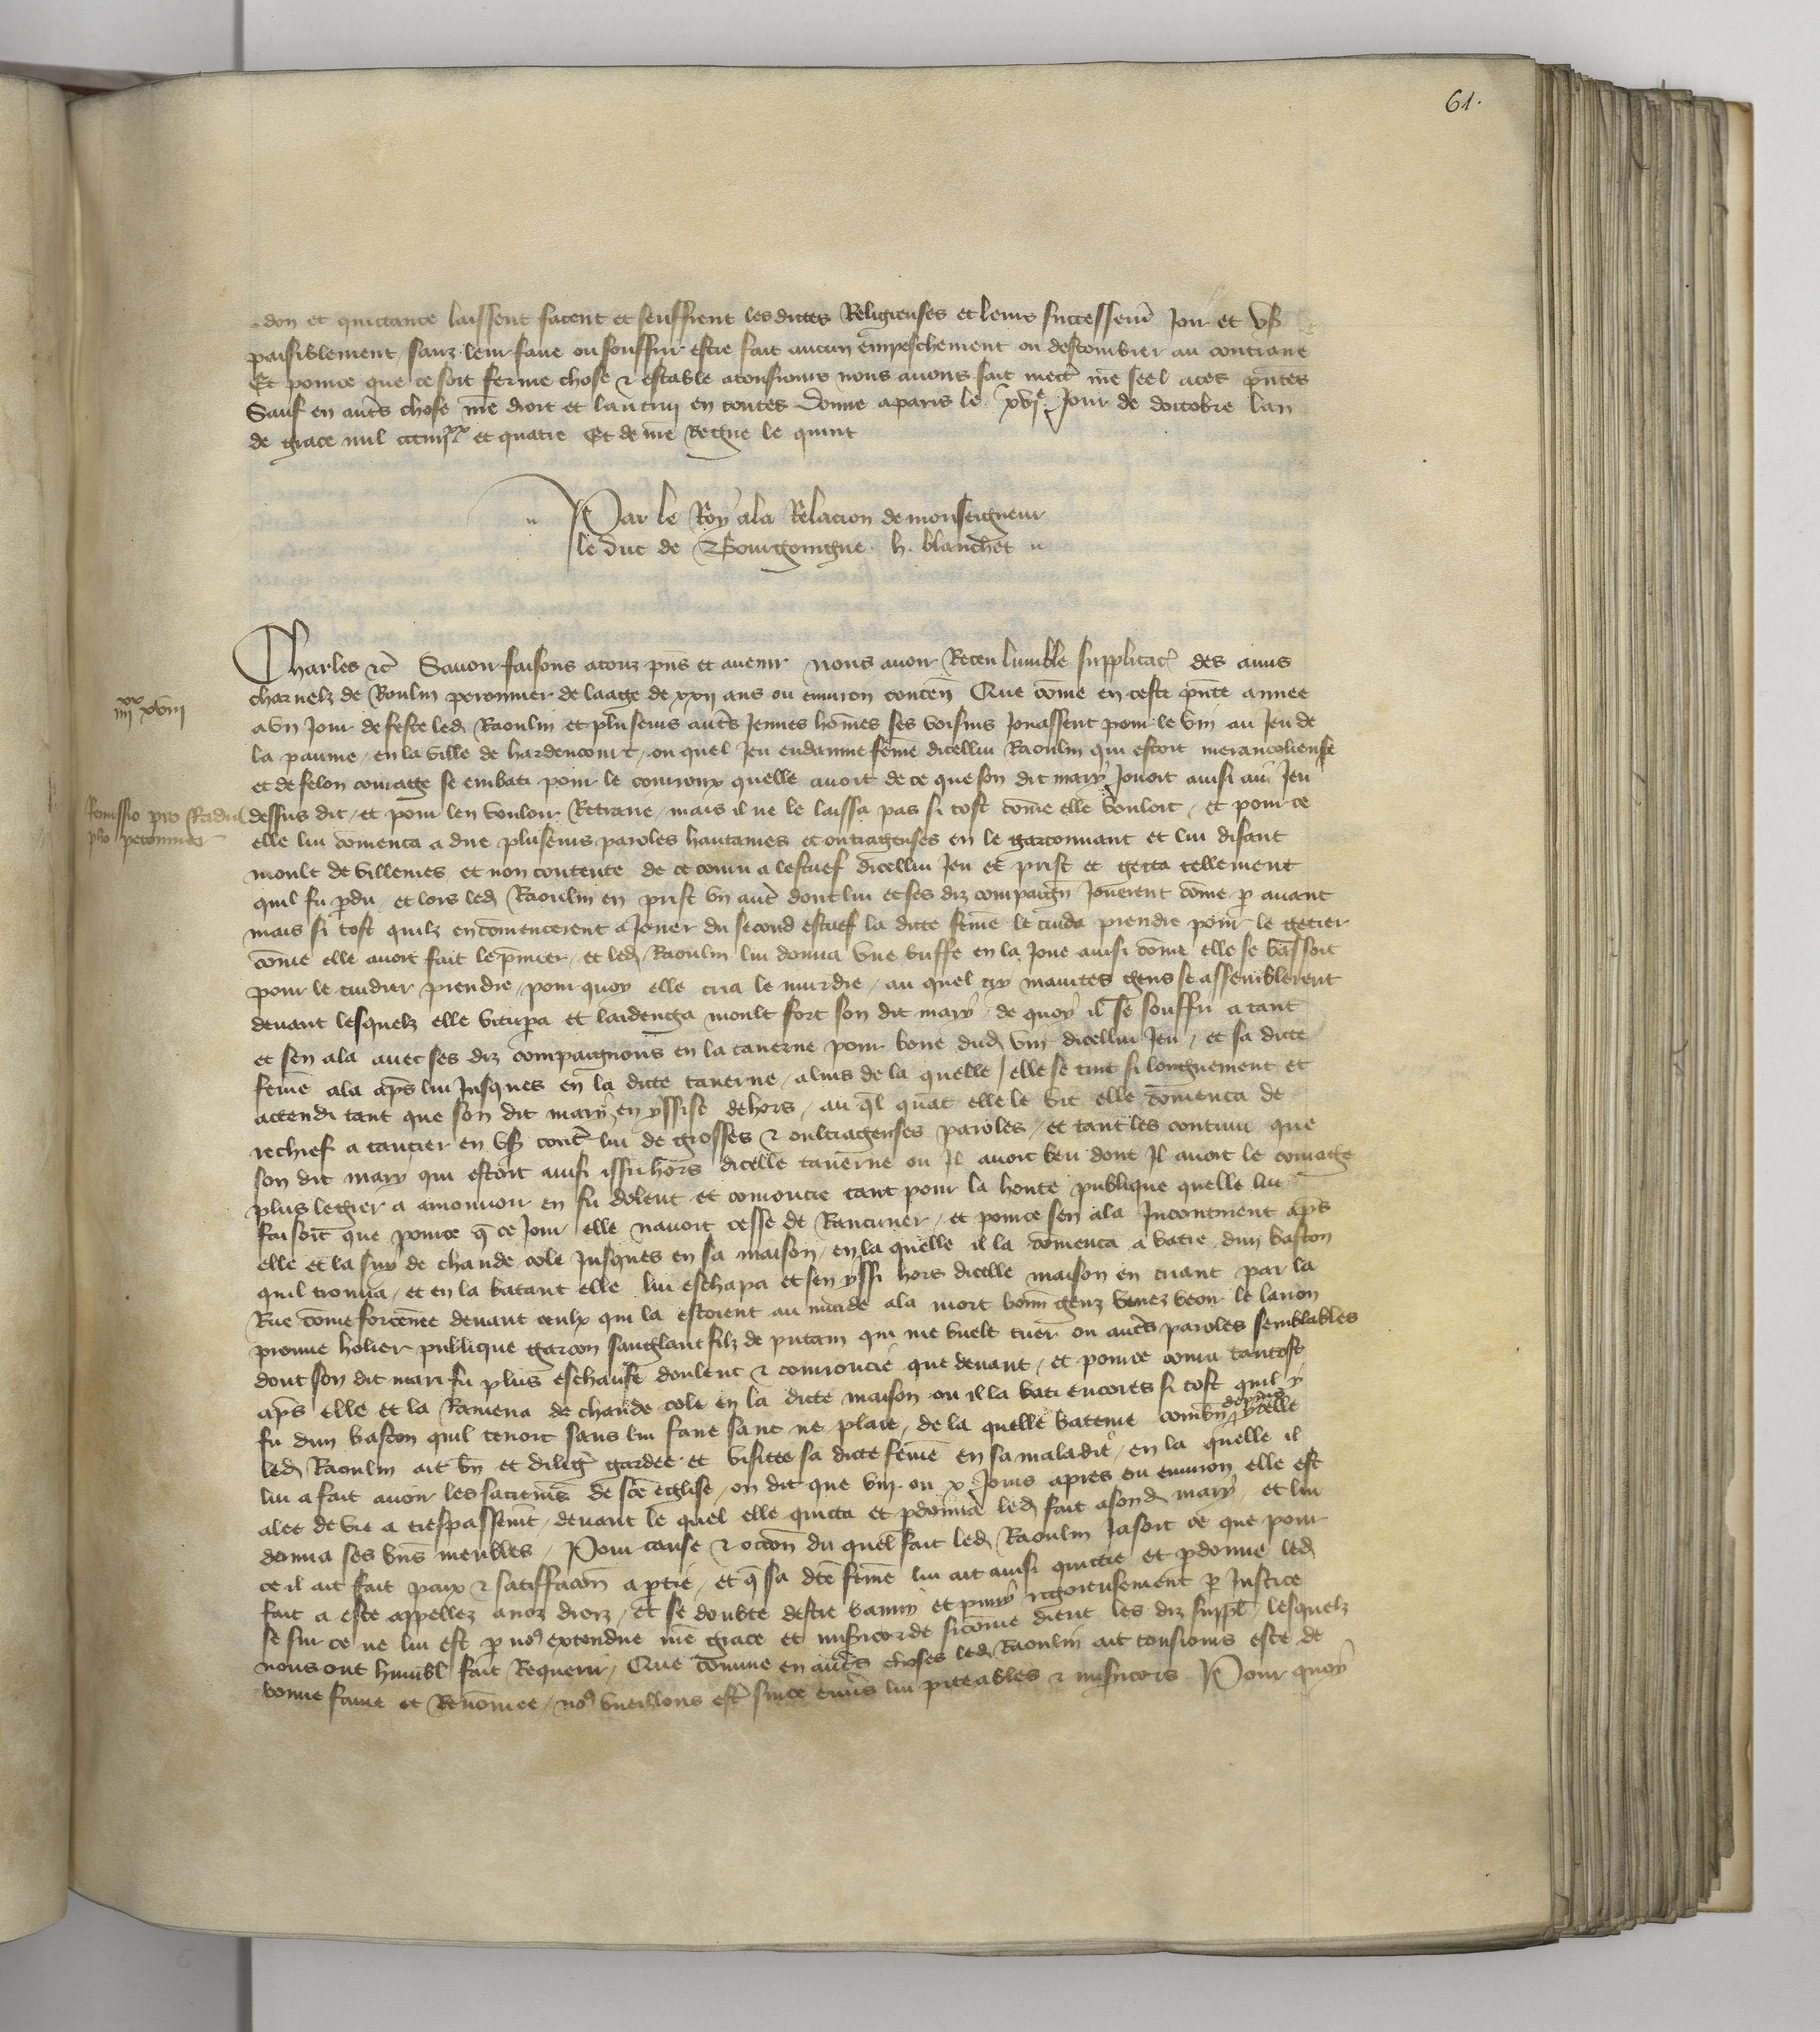 61.
don et quictance laissent facent et seuffrent les dictes Religieuses et leurs successeurs Joir et us
paisiblement sanz leur faire ou souffrir estre fait aucun empeschement ou destourbier au contraire
Et pource que ce soit ferme chose & estable atousiours nous avons fait mectr nre seel aces pntes
Sauf en autrs chose nre droit et lautrui en toutes Donne aparis le xvje Jour de doctobre lan
de grace mil ccc iiijxx et quatre Et de nre Regne le quint
Par le Roy ala Relacion de monseigneur
le duc de Bourgoingne. h. blanchet
Charles &c Savoir faisons atouz pns et avenir nous avoir Receu lumble supplicac des amis
charnelz de Roulin peronnier de laage de xxij ans ou environ conten Que come en ceste pnte annee
iiijxx xviij
a un Jour de feste led Raoulin et pluseurs autrs Jeunes homes ses voisins Jouassent pour le vin au Jeu de
la paume en la ville de hardencourt, ou quel Jeu endamme feme dicellui Raoulin qui estoit merancolieuse
et de felon courage se embati pour le courroux quelle avoit de ce que son dit mary Jouoit ainsi au Jeu
Remissio pro Radulpho peronnier
dessus dit, et pour len vouloir Retraire, mais il ne le laissa pas si tost come elle vouloit, et pour ce
elle lui comenca a dire pluseurs paroles haultaines et oultrageuses en le garconnant et lui disant
moult de villenies et non contente de ce couru a lestuef dicellui Jeu et prist et getta tellement
quil fu pdu, et lors led Raoulin en prist un autr dont lui et ses diz compaign Jouerent come p avant
mais si tost quilz encomencerent a Jouer du second estuef la dicte feme le cuida prendre pour le getter
come elle avoit fait le pmier, et led Raoulin lui donna une buffe en la Joue ainsi come elle se bassoit
pour le cuidier prendre, pour quoy elle cria le murdre, au quel cry maintes gens se assemblerent
devant lesquelz elle vitupa et laidenga moult fort son dit mary, de quoy il se souffri a tant
et sen ala avec ses diz compaignons en la taverne pour boire dud vin dicellui Jeu, et sa dicte
feme ala aps lui Jusques en la dicte taverne, aluis de la quelle elle se tint si longuement et
actendi tant que son dit mary en yssise dehors, au ql quat elle le vit elle comenca de
rechief a tancier en us contr lui de grosses & oultrageuses paroles, et tant les continu que
son dit mary qui estoit ainsi issu hors dicelle taverne ou Il avoit beu dont Il avoit le courage
plus legier a amouvoir en fu dolent et courroucie tant pour la honte publique quelle lui
faisoit que pource q ce Jour elle navoit cesse de Rancuner, et pource sen ala Incontinent aps
elle et la suy de chaude cole Jusques en sa maison, en la quelle il la comenca a batre dun baston
quil trouva, et en la batant elle lui eschapa et sen yssi hors dicelle maison en criant par la
Rue come forcenee devant ceulx qui la estoient au murdre ala mort bonn genz venez veoir le larron
prouve holier publique garcon sanglant filz de putain qui me vuelt tuer ou autrs paroles semblables
dont son dit mari fu plus eschaufe doulent & courroucie que devant, et pource couru tantost
aps elle et la Ramena de chaude cole en la dicte maison ou il la bati encores si tost quil y
fu dun baston quil tenoit sans lui faire sanc ne plaie, de la quelle bateure combn depuis ycelle
led Raoulin ait bn et diligr gardee et visitee sa dicte feme en sa maladie, en la quelle il
lui a fait avoir les sacremens de sce eglise, on dit que viij ou x Jours apres ou environ elle est
alee de vie a trespassemt, devant le quel elle quicta et pdonna led fait asond mary, et lui
donna ses bns meubles, Pour cause & occon du quel fait led Raoulin Jasoit ce que pour
ce il ait fait paix & satisfacon a ptie, et q sa dte feme lui ait ainsi quictie et pdonne led
fait a este appellez anoz droiz, et se doubte destre banny et puny rigoreusement p Justice
se sur ce ne lui est p nos extendue nre grace et misericorde sicome dient les diz suppl, lesquelz
nous ont humbl fait Requerir, Que comme en autrs choses led Raoulin ait tousiours este de
bonne fame et Renomee, nos vueillons estr surce envrs lui piteables & misricors Pour quoy